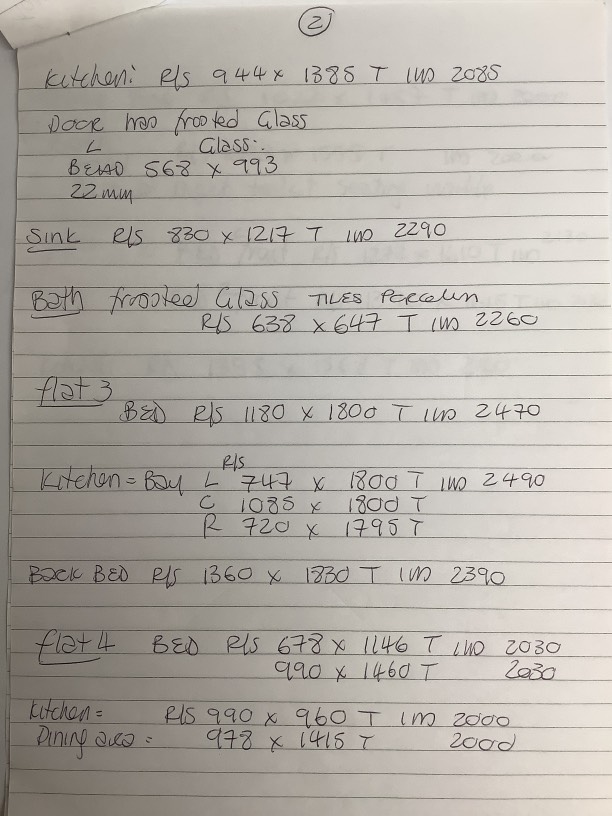 2
Kitchen: R/S 944 x 1385 T IWD 2085
Door has frosted Glass
L Glass:.
BEAD 568 x 993
22mm
Sink R/S 830 x 1217 T IWD 2290
Bath frosted Glass TILES Percelin
R/S 638 x 647 T IWD 2260
flat 3
BED R/S 1180 x 1800 T IWD 2470
R/S
Kitchen = Bay L 747 x 1800 T IWD 2490
C 1085 x 1800 T
R 720 x 1795 T
BACK BED R/S 1360 x 1830 T IWD 2390
flat 4 BED R/S 678 x 1146 T IWD 2030
990 x 1460 T 2030
Kitchen = R/S 990 x 960 T IWD 2000
Dining area = 978 x 1415 T 2000